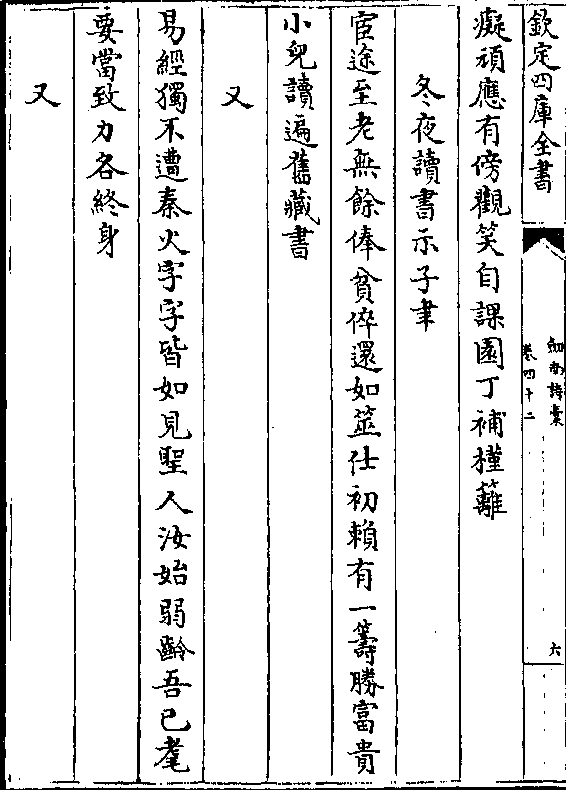 欽定四庫全書
劍南詩稾
卷四十二
六
癡頑應有傍觀笑自課園丁補槿籬
冬夜讀書示子聿
宦途至老無餘俸貧倅還如筮仕初賴有一籌勝富貴
小兒讀遍舊藏書
又
易經獨不遭秦火字字皆如見聖人汝始弱齡吾已耄
要當致力各終身
又